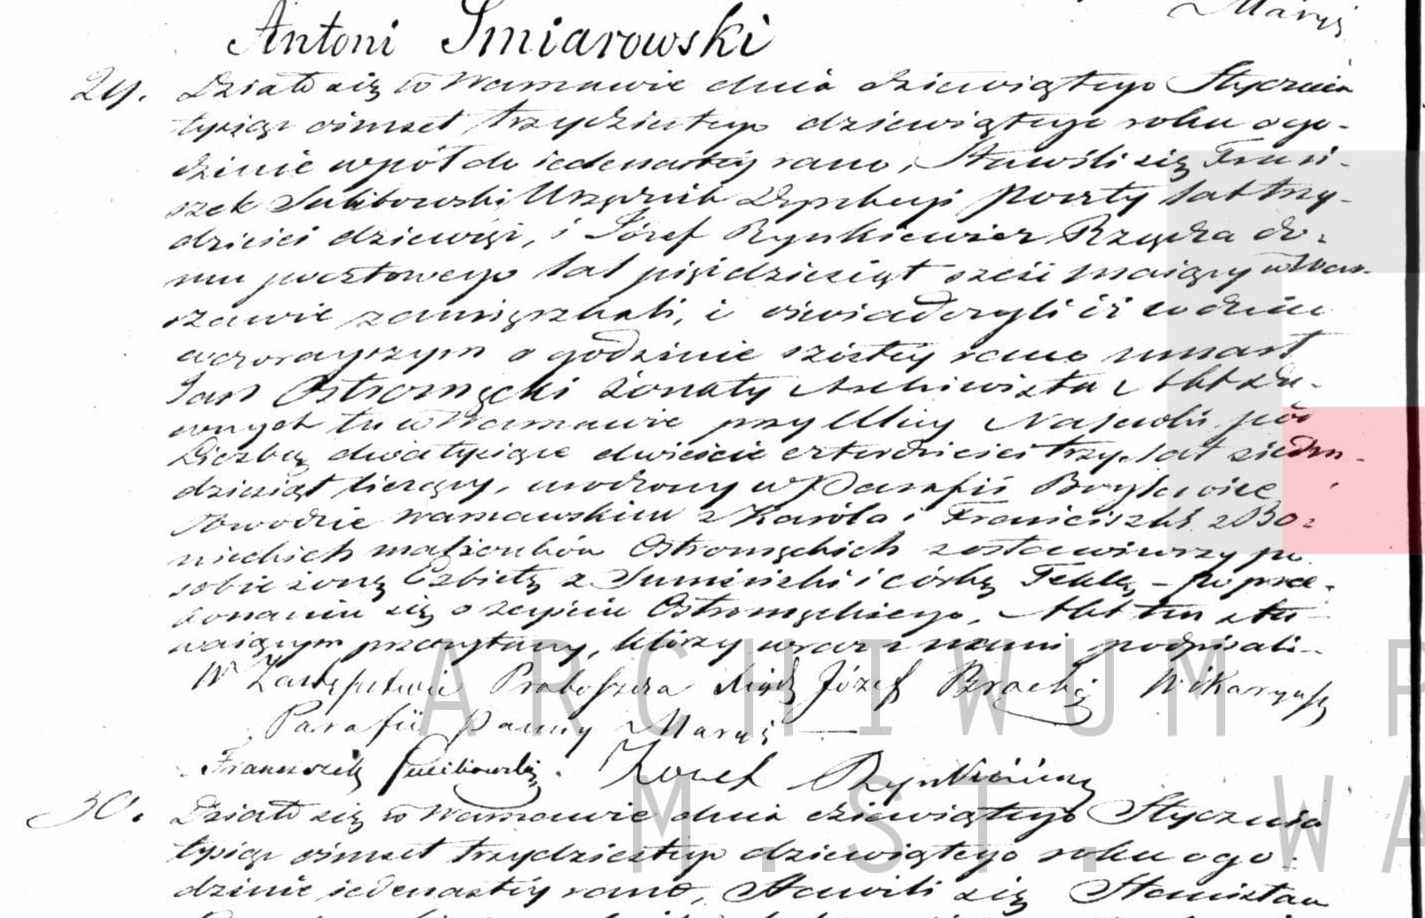 Maryi
Antoni Smiarowski
29. Działo się w Warszawie dnia dziewiątego Stycznia
tysiąc ośmset trzydziestego dziewiątego roku o go-
dzinie wpół do iedenastéy rano, Stawili się Franci-
szek Urzędnik Dyrekcyi Poczty lat trzy-
dzieści dziewięć, i Józef Rynkiewicz Rządca do-
mu pocztowego lat pięśdziesiąt sześć maiący w War-
szawie zamięszkali, i oświadczyli iż w dniu
wczorayszym o godzinie szóstey rano umarł
Jan Ostromęcki żonaty Archiwista Akt Da-
wnych tu w Warszawie przy Ulicy pod
Liczbą dwa tysiące dwieście czterdzieści trzy, lat siedm-
dziesiąt liczący, urodzony w Parafii
Obwodzie Warszawskim z Karola i Franciszki z Bo-
nieckich małżonków Ostromęckich zostawiwszy po
sobie żonę Elżbietę z i córkę Teklę – Po prze-
konaniu się o zejściu Ostromęckiego, Akt ten sta-
waiącym przeczytany, którzy wraz z nami podpisali –
W Zastępstwie Proboszcza Xiądz Józef Wikaryusz
Parafii Panny Maryi —
Franciszek Józef Rynkiewicz
30. Działo się w Warszawie dnia dziewiątego Stycznia
tysiąc ośmset trzydziestego dziewiątego roku o go-
dzinie iedenastéy rano, Stawili się Stanisław
ARCHIWUM P
M. ST. WA